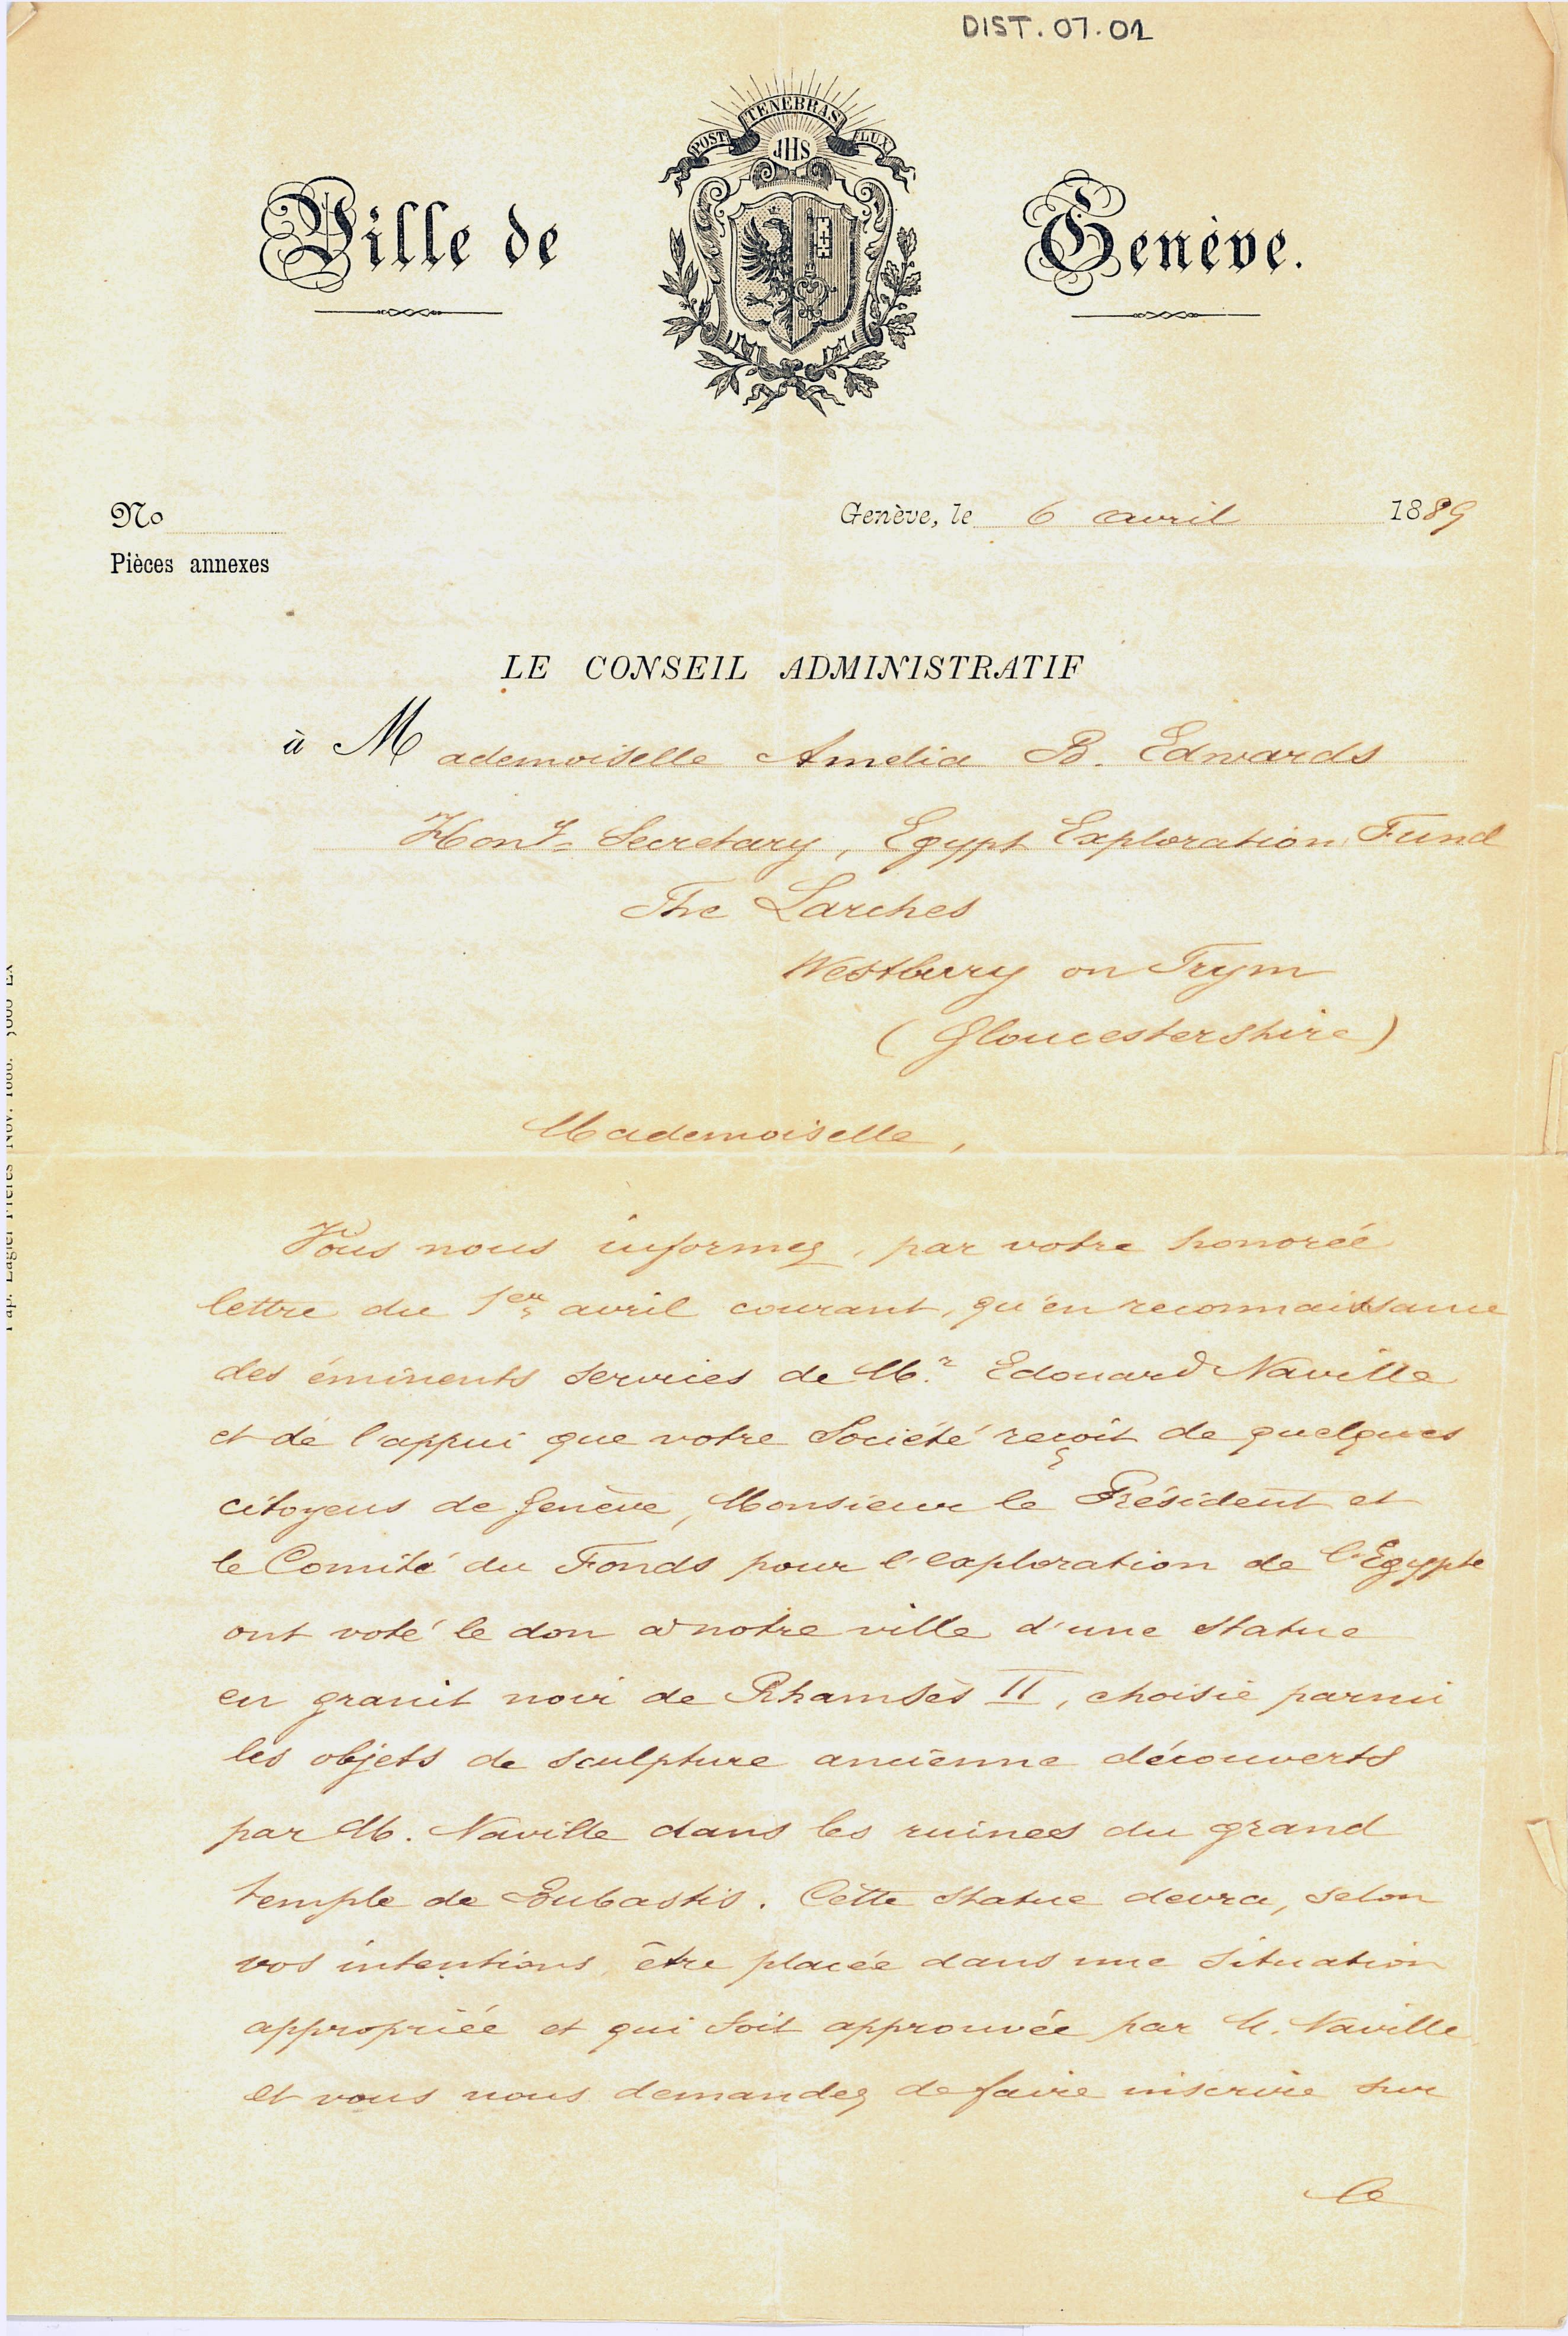 DIST. 07.01
POST TENEBRAS LUX
JHS
Ville de Genève.
No
Genève, le 6 avril 1889
Pièces annexes
LE CONSEIL ADMINISTRATIF
à Mademoiselle Amelia B. Edwards
Hon.y Secretary, Egypt Exploration Fund
The Larches
Westbury on Trym
(Gloucestershire)
Mademoiselle,
Vous nous informez, par votre honorée
lettre du 1er avril courant, qu'en reconnaissance
des éminents services de Mr. Edouard Naville
et de l'appui que votre Société reçoit de quelques
citoyens de Genève, Monsieur le Président et
le Comité du Fonds pour l'exploration de l'Egypte
ont voté le don à notre ville d'une statue
en granit noir de Rhamsès II, choisie parmi
les objets de sculpture ancienne découverts
par M. Naville dans les ruines du grand
temple de Bubastis. Cette statue devra, selon
vos intentions, être placée dans une situation
appropriée et qui soit approuvée par M. Naville
et vous nous demandez de faire inscrire sur
le
Pap. Lagier Frères Nov. 1888. 3000 Ex